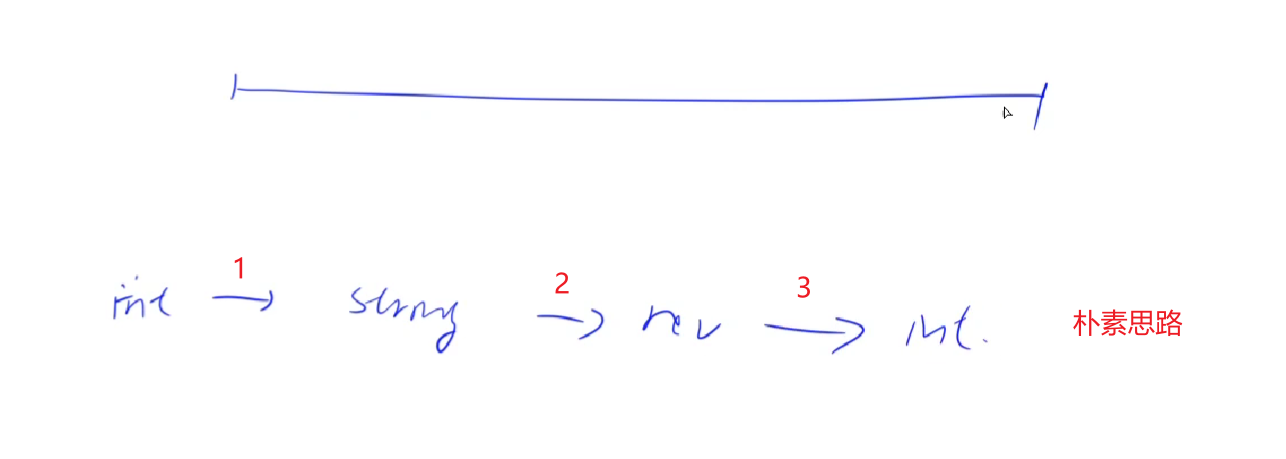 int 1→ string 2→ rev 3→ int. 朴素思路